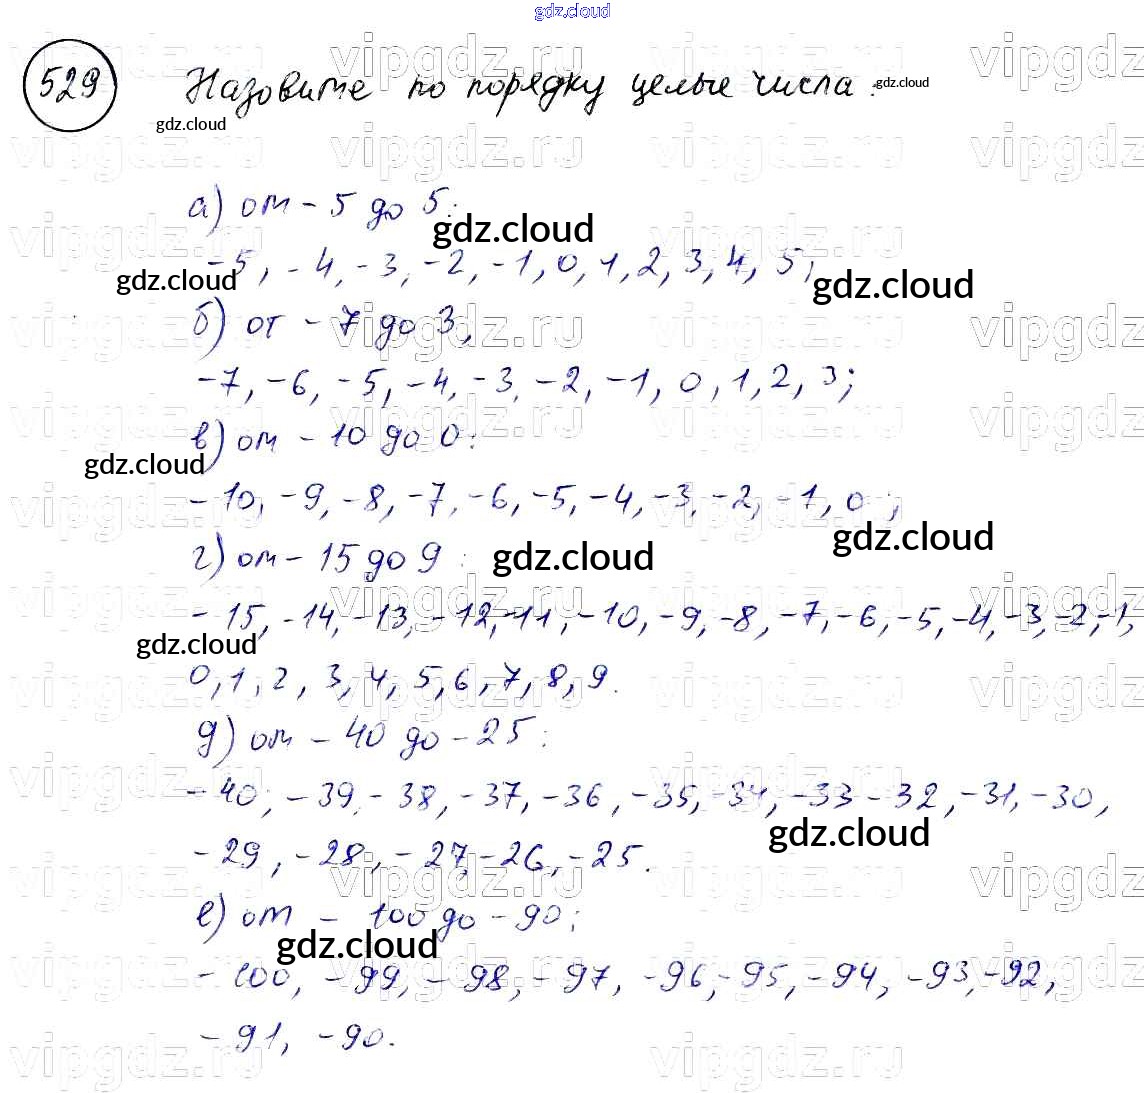 gdz.cloud
529 Назовите по порядку целые числа:
а) от -5 до 5:
-5, -4, -3, -2, -1, 0, 1, 2, 3, 4, 5;
б) от -7 до 3,
-7, -6, -5, -4, -3, -2, -1, 0, 1, 2, 3;
в) от -10 до 0:
-10, -9, -8, -7, -6, -5, -4, -3, -2, -1, 0;
г) от -15 до 9:
-15, -14, -13, -12, -11, -10, -9, -8, -7, -6, -5, -4, -3, -2, -1,
0, 1, 2, 3, 4, 5, 6, 7, 8, 9.
д) от -40 до -25:
-40, -39, -38, -37, -36, -35, -34, -33 -32, -31, -30,
-29, -28, -27, -26, -25.
е) от -100 до -90;
-100, -99, -98, -97, -96, -95, -94, -93, -92,
-91, -90.
vipgdz.ru